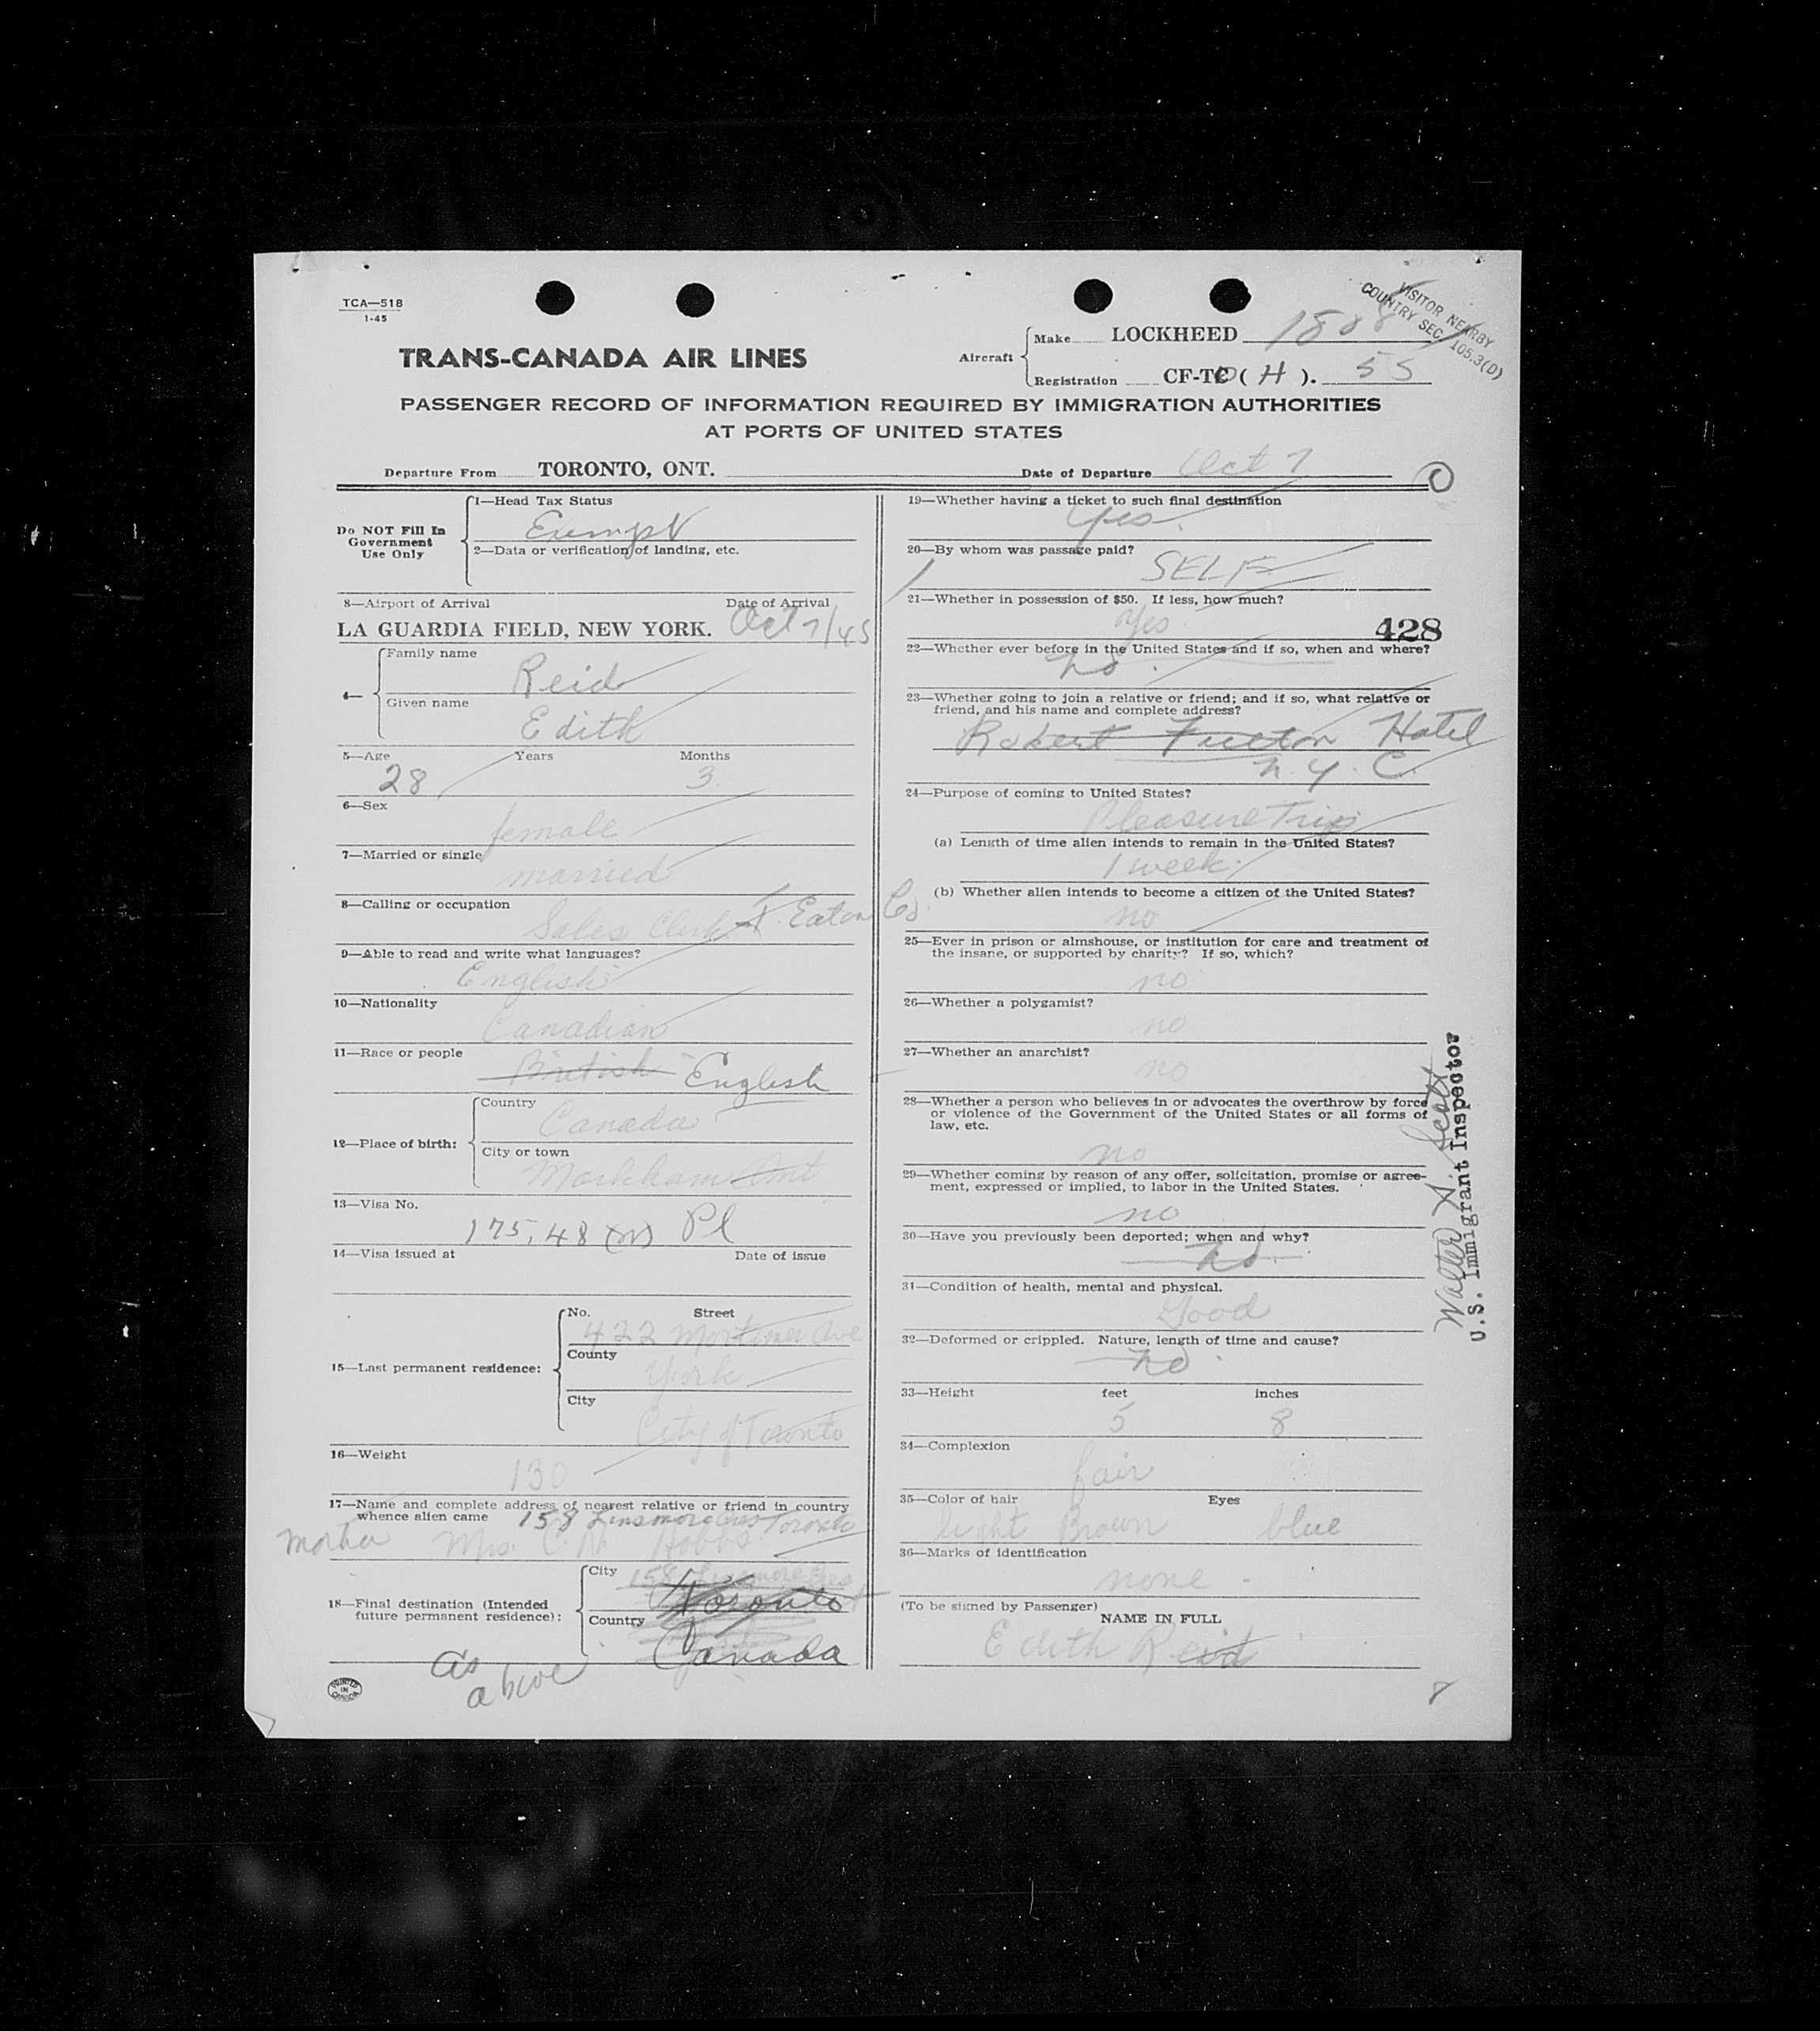 TCA—518
1-45
VISITOR NEARBY
COUNTRY SEC. 105.3(D)
TRANS-CANADA AIR LINES
Aircraft
Make LOCKHEED 1808
Registration CF-TC ( H ). 55
PASSENGER RECORD OF INFORMATION REQUIRED BY IMMIGRATION AUTHORITIES
AT PORTS OF UNITED STATES
Departure From TORONTO, ONT. Date of Departure Oct 7
Do NOT Fill In
Government
Use Only
1—Head Tax Status
Exempt
2—Data or verification of landing, etc.
8—Airport of Arrival Date of Arrival
LA GUARDIA FIELD, NEW YORK. Oct 7/45
4—
Family name
Reid
Given name
Edith
5—Age Years Months
28 3
6—Sex
female
7—Married or single
married
8—Calling or occupation
Sales Clerk T. Eaton Co.
9—Able to read and write what languages?
English
10—Nationality
Canadian
11—Race or people
British English
12—Place of birth:
Country
Canada
City or town
Markham Ont
13—Visa No.
175.48 Pl
14—Visa issued at Date of issue
15—Last permanent residence:
No. Street
422 Mortimer Ave
County
York
City
City of Toronto
16—Weight
130
17—Name and complete address of nearest relative or friend in country
whence alien came 158 Linsmore Cres Toronto
Mother Mrs. C. N. Hobbs
18—Final destination (Intended
future permanent residence):
City 158 Linsmore Cres
Toronto
Country
Canada
as
above
PRINTED
IN
CANADA
19—Whether having a ticket to such final destination
Yes.
20—By whom was passage paid?
SELF
21—Whether in possession of $50. If less, how much?
Yes
428
22—Whether ever before in the United States and if so, when and where?
No.
23—Whether going to join a relative or friend; and if so, what relative or
friend, and his name and complete address?
Robert Fulton Hotel
N.Y.C.
24—Purpose of coming to United States?
Pleasure Trip
(a) Length of time alien intends to remain in the United States?
1 week.
(b) Whether alien intends to become a citizen of the United States?
no
25—Ever in prison or almshouse, or institution for care and treatment of
the insane, or supported by charity? If so, which?
no
26—Whether a polygamist?
no
27—Whether an anarchist?
no
28—Whether a person who believes in or advocates the overthrow by force
or violence of the Government of the United States or all forms of
law, etc.
no
29—Whether coming by reason of any offer, solicitation, promise or agree-
ment, expressed or implied, to labor in the United States.
no
30—Have you previously been deported; when and why?
No.
31—Condition of health, mental and physical.
Good
32—Deformed or crippled. Nature, length of time and cause?
No.
33—Height feet inches
5 8
34—Complexion
fair
35—Color of hair Eyes
light Brown blue
36—Marks of identification
none -
(To be signed by Passenger)
NAME IN FULL
Edith Reid
Walter S. Scott
U.S. Immigrant Inspector
8